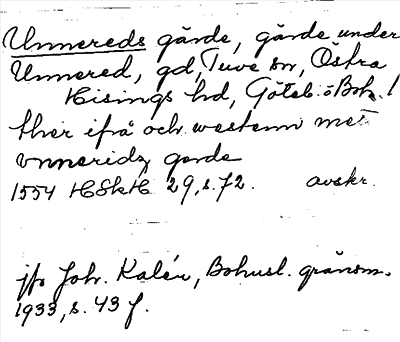 Unnereds gärde, gärde under
Unnered, gd, Tuve sn, Östra
Hisings hd, Göteb. o Boh. l
ther ifrå och westenn met
vnneridz gerde
1554 HSkH 29, s. 72. avskr.
jfr Joh. Kalén, Bohusl. gränsm.
1933, s. 43 f.